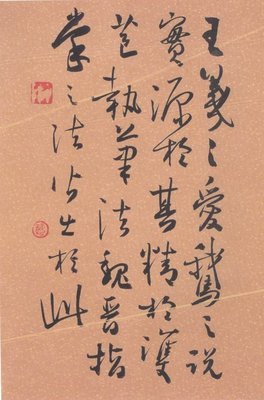 王羲之愛鵝之说
實源於其精於
苞執筆法魏晉指
掌之法皆出於此